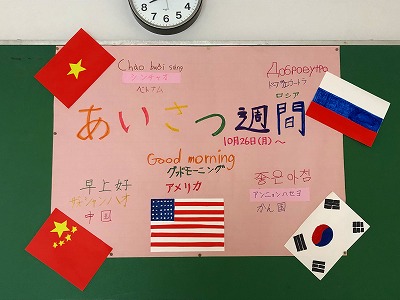 Chào buổi sáng
シンチャオ
ベトナム
Доброе утро
ロシア
あいさつ週間
10月26日(月)～
Good morning
グッドモーニング
アメリカ
早上好
ザォシャンハオ
中国
좋은 아침
アンニョンハセヨ
かん国